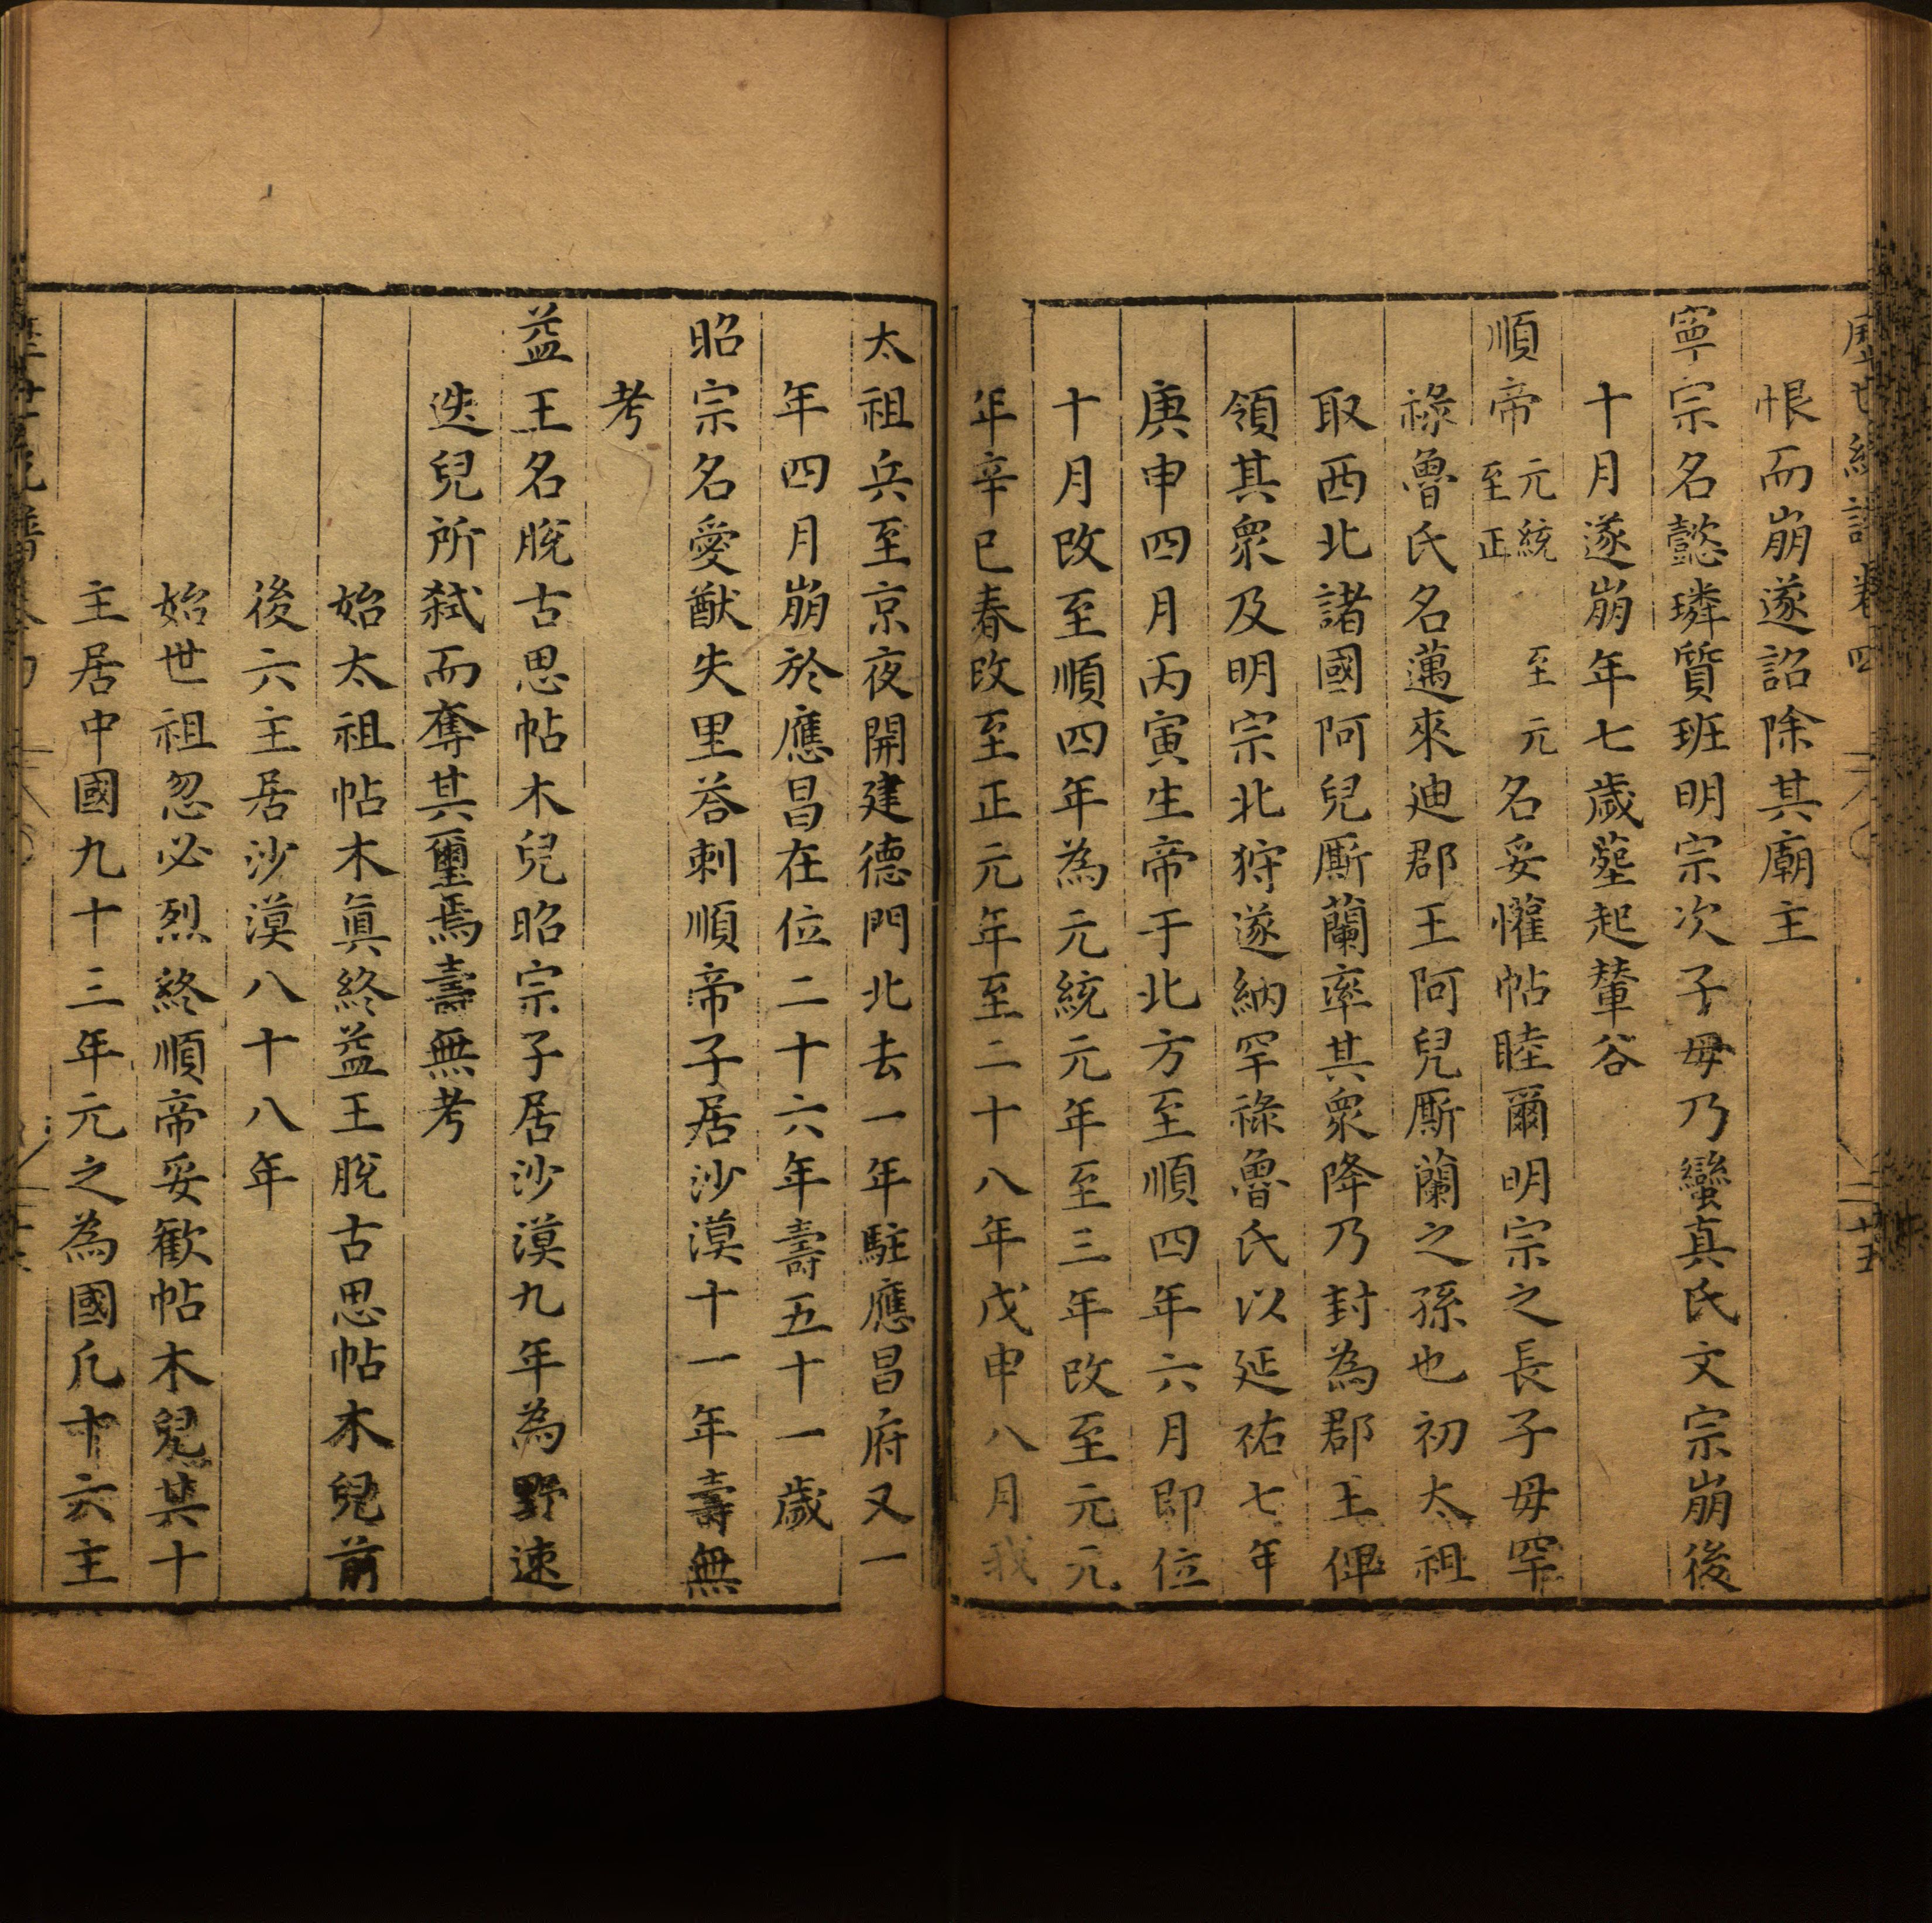 恨而崩遂詔除其廟主
寧宗名懿璘質班明宗次子母乃蠻真氏文宗崩後
十月遂崩年七歲葬起輦谷
順帝元統至元至正名妥懽帖睦爾明宗之長子母罕
祿魯氏名邁來迪郡王阿兒厮蘭之孫也初太祖
取西北諸國阿兒厮蘭率其衆降乃封為郡王俾
領其衆及明宗北狩遂納罕祿魯氏以延祐七年
庚申四月丙寅生帝于北方至順四年六月即位
十月改至順四年為元統元年至三年改至元元
年辛巳春改至正元年至二十八年戊申八月我
太祖兵至京夜開建德門北去一年駐應昌府又一
年四月崩於應昌在位二十六年壽五十一歲
昭宗名愛猷失里荅剌順帝子居沙漠十一年壽無
考
益王名脫古思帖木兒昭宗子居沙漠九年為野速
迭兒所弒而奪其璽焉壽無考
始太祖帖木真終益王脫古思帖木兒前
後六主居沙漠八十八年
始世祖忽必烈終順帝妥歡帖木兒其十
主居中國九十三年元之為國凡十六主